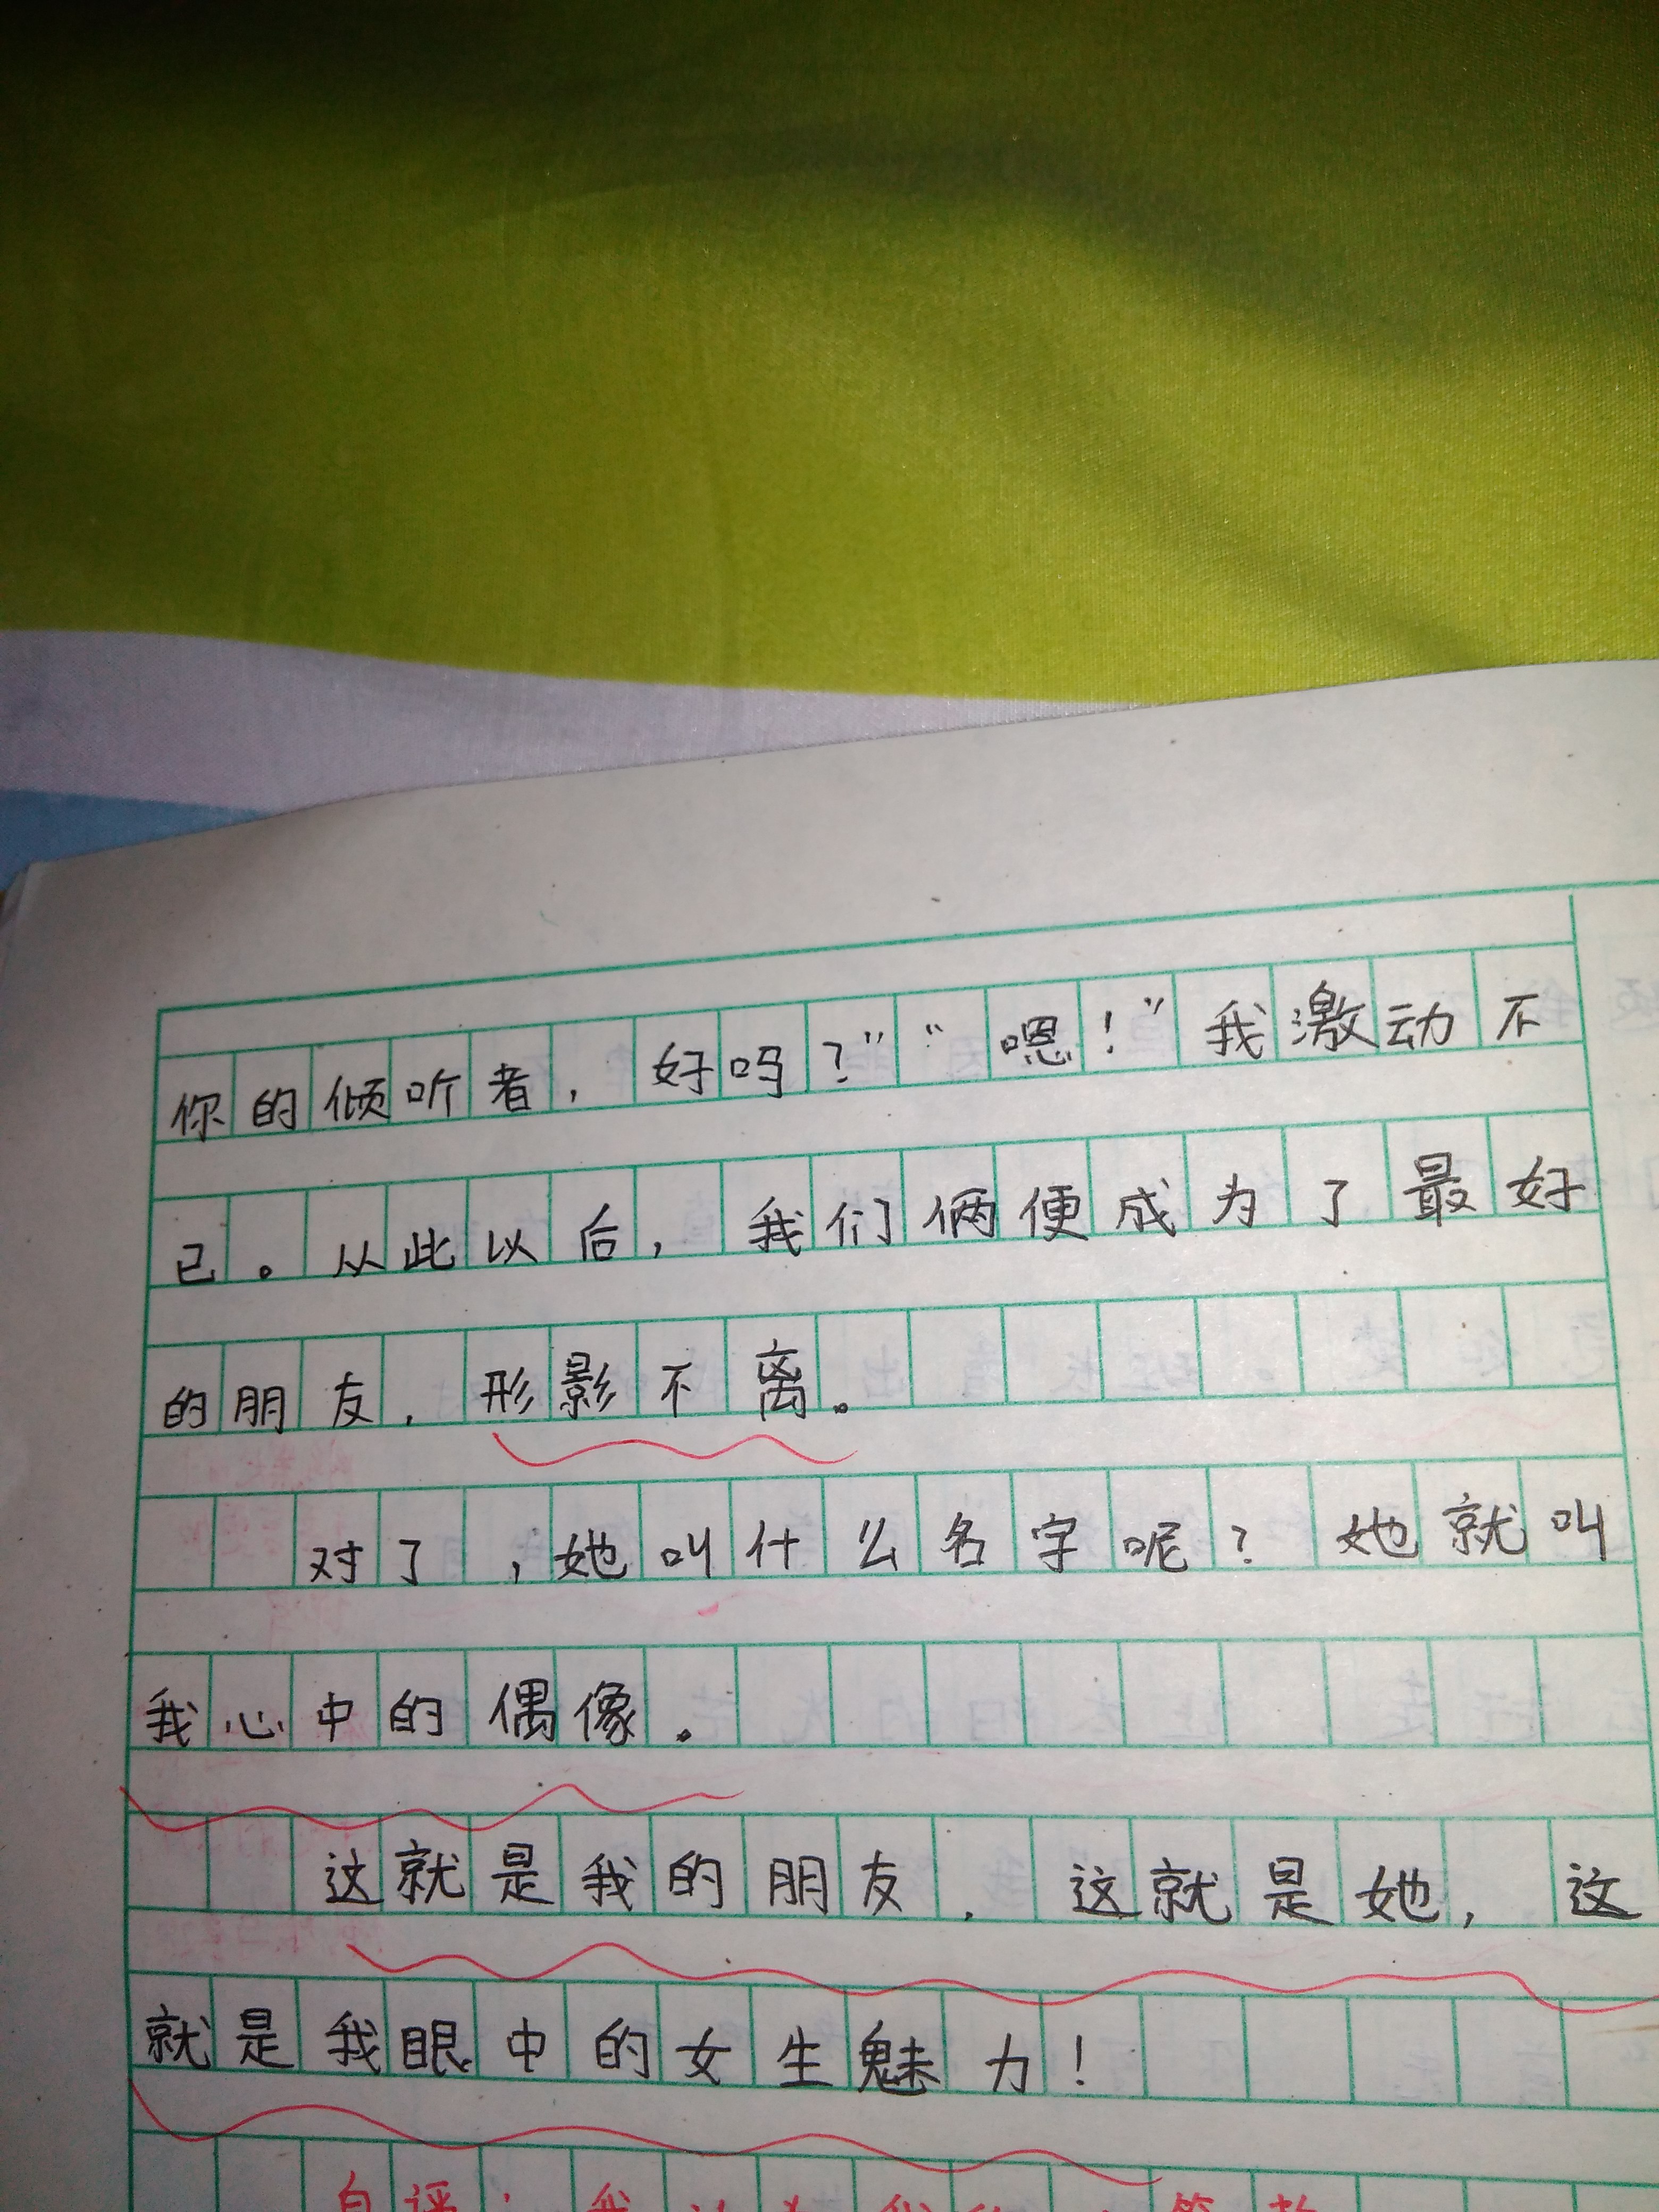 你的倾听者，好吗？”“嗯！”我激动不
已。从此以后，我们俩便成为了最好
的朋友，形影不离。
对了，她叫什么名字呢？她就叫
我心中的偶像。
这就是我的朋友，这就是她，这
就是我眼中的女生魅力！
自评：我